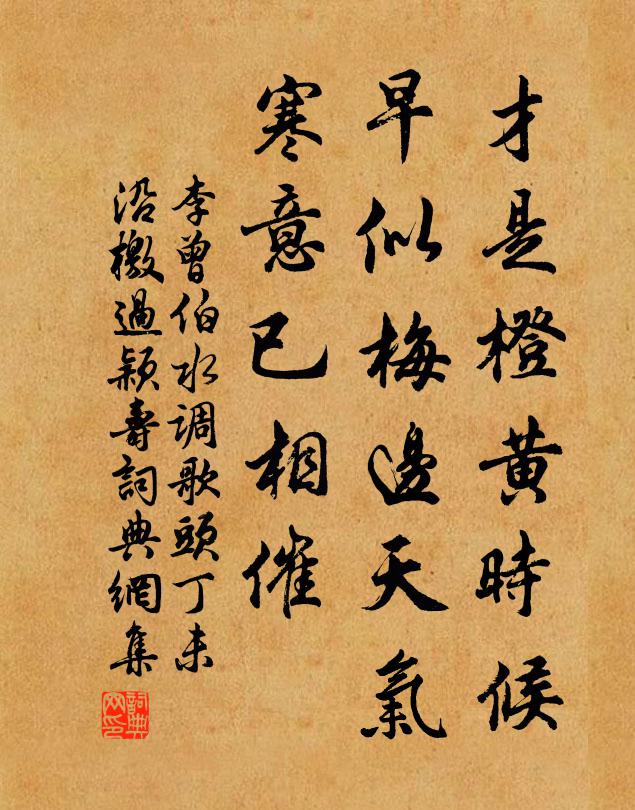 才是橙黄時候
早似梅邊天氣
寒意已相催
李曾伯水调歌頭丁未
沿檄過颍壽詞典網集
詞典网印